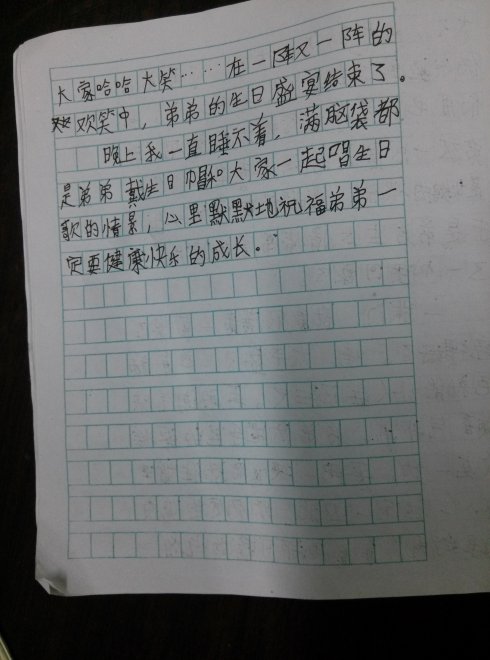 大家哈哈大笑……在一阵又一阵的
欢笑中，弟弟的生日盛宴结束了。
晚上我一直睡不着，满脑袋都
是弟弟戴生日帽和大家一起唱生日
歌的情景，心里默默地祝福弟弟一
定要健康快乐的成长。